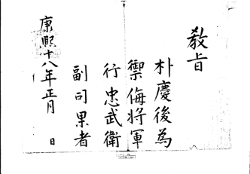 敎旨
朴慶後為
禦侮將軍
行忠武衛
副司果者
康熙十八年正月　日